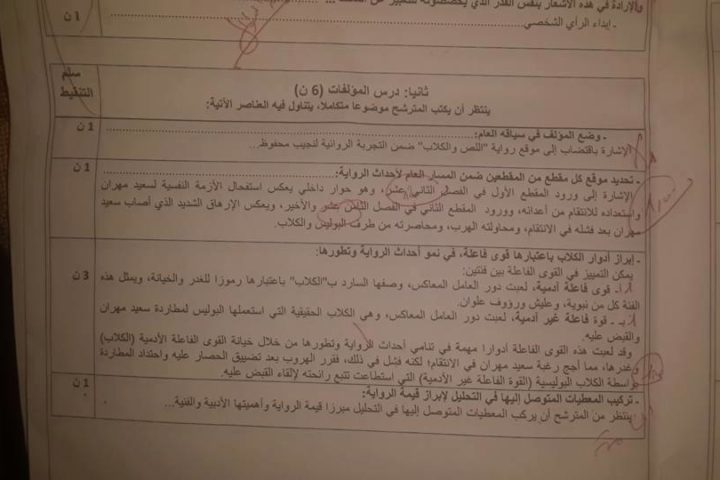 والإرادة في هذه الأشعار بنفس القدر الذي
- إبداء الرأي الشخصي.
1 ن
سلم التنقيط
ثانيا: درس المؤلفات (6 ن)
ينتظر أن يكتب المترشح موضوعا متكاملا، يتناول فيه العناصر الآتية:
- وضع المؤلف في سياقه العام:
1 ن
الإشارة باقتضاب إلى موقع رواية "اللص والكلاب" ضمن التجربة الروائية لنجيب محفوظ.
- تحديد موقع كل مقطع من المقطعين ضمن المسار العام لأحداث الرواية:
1 ن
الإشارة إلى ورود المقطع الأول في الفصل الثاني عشر، وهو حوار داخلي يعكس استفحال الأزمة النفسية لسعيد مهران
واستعداده للانتقام من أعدائه، وورود المقطع الثاني في الفصل الثامن عشر والأخير، ويعكس الإرهاق الشديد الذي أصاب سعيد
مهران بعد فشله في الانتقام، ومحاولته الهرب، ومحاصرته من طرف البوليس والكلاب.
- إبراز أدوار الكلاب باعتبارها قوى فاعلة، في نمو أحداث الرواية وتطورها:
يمكن التمييز في القوى الفاعلة بين فئتين:
3 ن
أ- قوى فاعلة آدمية، لعبت دور العامل المعاكس، وصفها السارد ب"الكلاب" باعتبارها رموزا للغدر والخيانة، ويمثل هذه
الفئة كل من نبوية، وعليش ورؤوف علوان.
ب- قوة فاعلة غير آدمية، لعبت دور العامل المعاكس، وهي الكلاب الحقيقية التي استعملها البوليس لمطاردة سعيد مهران
والقبض عليه.
وقد لعبت هذه القوى الفاعلة أدوارا مهمة في تنامي أحداث الرواية وتطورها من خلال خيانة القوى الفاعلة الآدمية (الكلاب)
وغدرها، مما أجج رغبة سعيد مهران في الانتقام؛ لكنه فشل في ذلك، فقرر الهروب بعد تضييق الحصار عليه واحتداد المطاردة
بواسطة الكلاب البوليسية (القوة الفاعلة غير الآدمية) التي استطاعت تتبع رائحته لإلقاء القبض عليه.
- تركيب المعطيات المتوصل إليها في التحليل لإبراز قيمة الرواية:
1 ن
ينتظر من المترشح أن يركب المعطيات المتوصل إليها في التحليل مبرزا قيمة الرواية وأهميتها الأدبية والفنية...